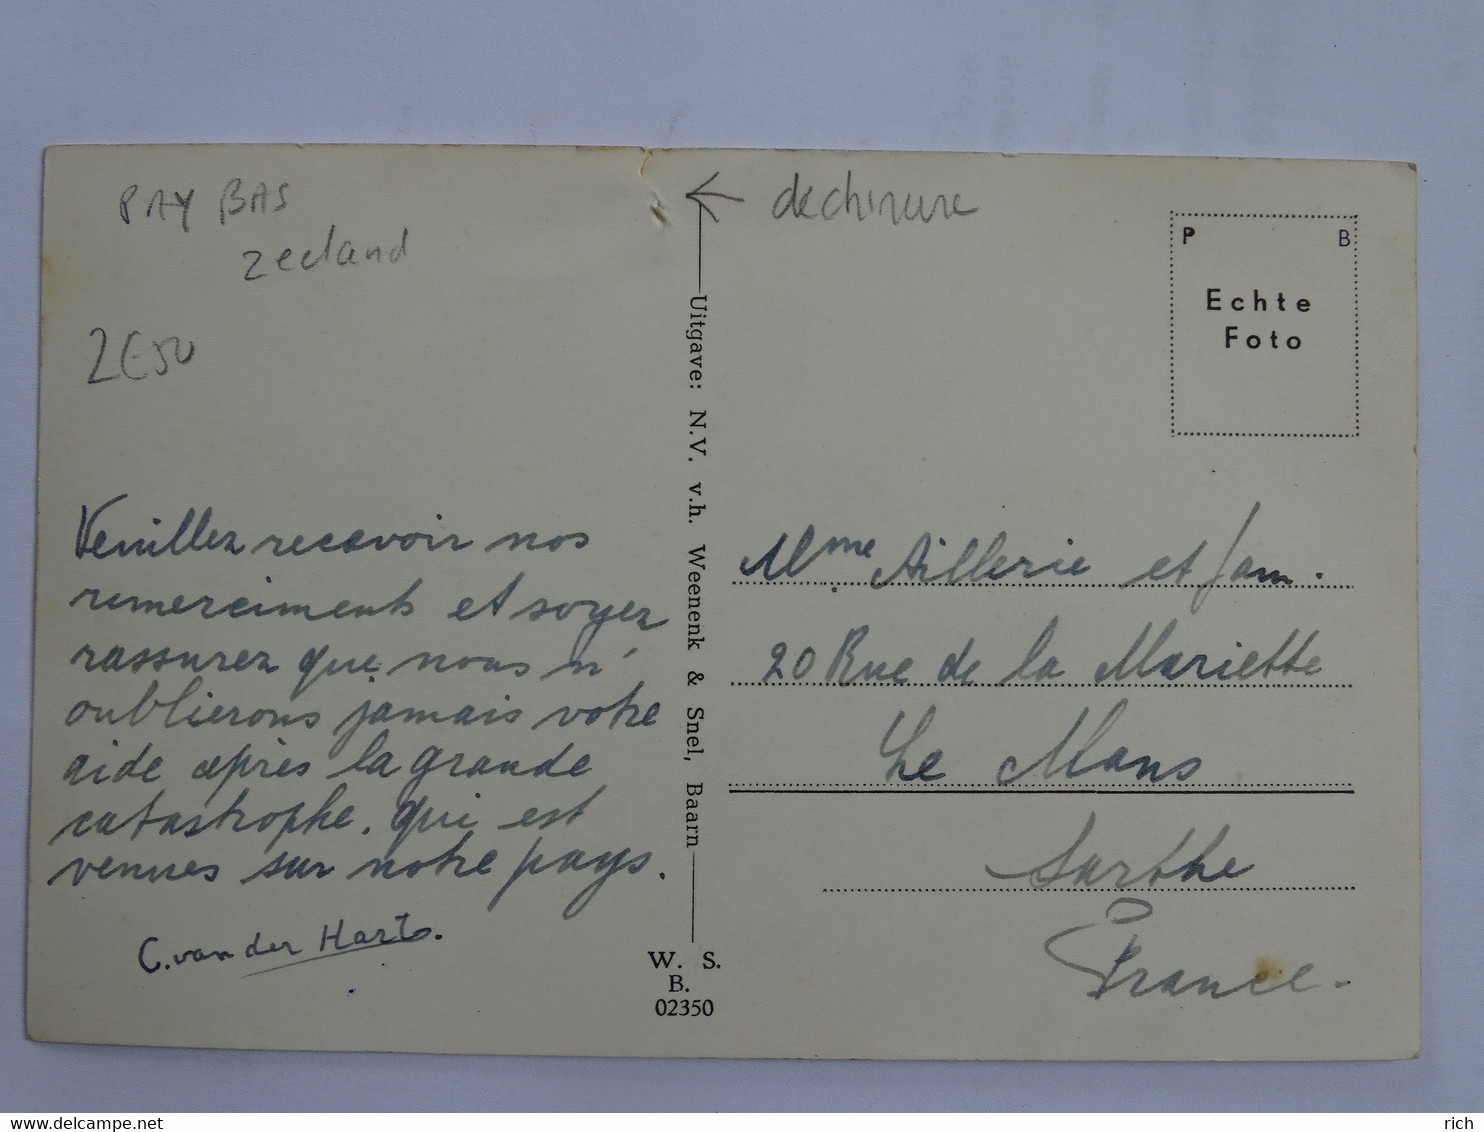 PAY BAS
zeeland
2€50
← dechirure
P B
Echte
Foto
Uitgave: N.V. v.h. Weenenk & Snel, Baarn
Veuillez recevoir nos
remerciments et soyez
rassurez que nous n'
oublierons jamais votre
aide après la grande
catastrophe. qui est
venues sur notre pays.
C. van der Harts.
Mme Aillerie et fam.
20 Rue de la Mariette
Le Mans
Sarthe
France.
W. S.
B.
02350
www.delcampe.net
rich